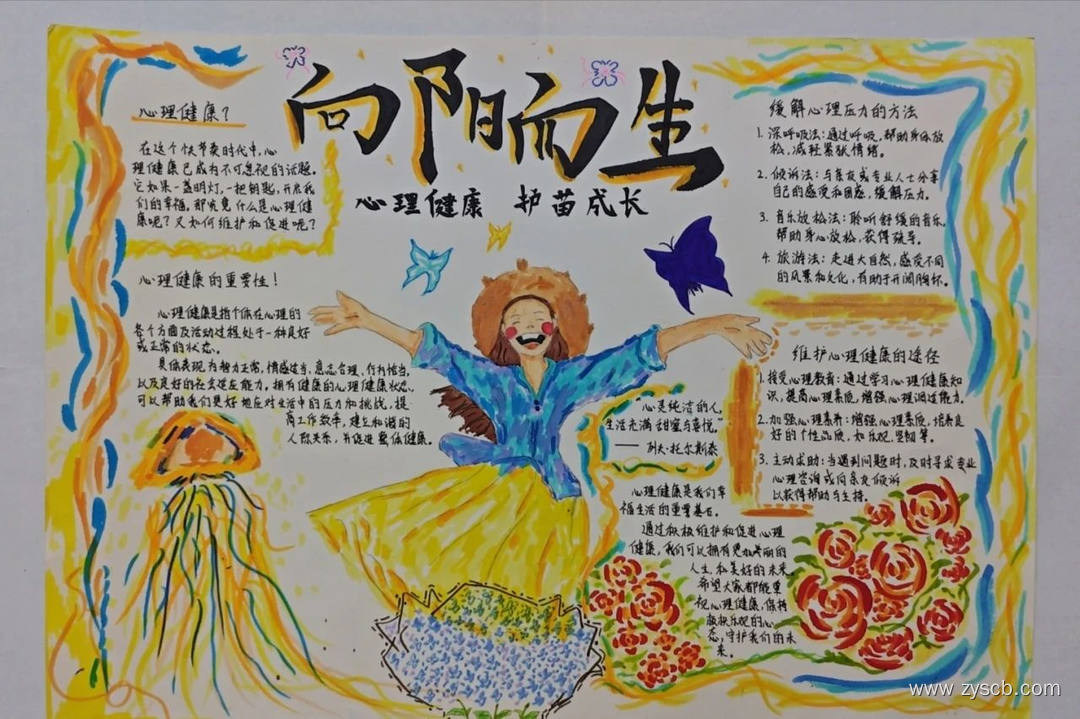 向阳而生
心理健康 护苗成长
心理健康?
在这个快节奏时代中,心
理健康已成为不可忽视的话题。
它如果一盏明灯,一把钥匙,开启我
们的幸福,那究竟什么是心理健
康呢?又如何维护和促进呢?
心理健康的重要性!
心理健康是指个体在心理的
各个方面及活动过程处于一种良好
或正常的状态。
具体表现为智力正常,情感适当,意志合理,行为恰当,
以及良好的社会适应能力。拥有健康的心理健康状态,
可以帮助我们更好地应对生活中的压力和挑战,提
高工作效率,建立和谐的
人际关系,并促进整体健康。
缓解心理压力的方法
1. 深呼吸法:通过呼吸,帮助身体放
松,减轻紧张情绪。
2. 倾诉法:与亲友或专业人士分享
自己的感受和困惑,缓解压力。
3. 音乐放松法:聆听舒缓的音乐,
帮助身心放松,获得疏导。
4. 旅游法:走进大自然,感受不同
的风景和文化,有助于开阔胸怀。
维护心理健康的途径
1. 接受心理教育:通过学习心理健康知
识,提高心理素质,增强心理调适能力。
2. 加强心理素养:增强心理素质,培养良
好的个性品质,如乐观、坚韧等。
3. 主动求助:当遇到问题时,及时寻求专业
心理咨询或向亲友倾诉
以获得帮助与支持。
“心是纯洁的人,
生活充满甜蜜与喜悦。”
——列夫·托尔斯泰
心理健康是我们幸
福生活的重要基石。
通过积极维护和促进心理
健康,我们可以拥有更加美丽的
人生和美好的未来。
希望大家都能重
视心理健康,保持
积极乐观的心
态,守护我们的未
来。
www.zyscb.com